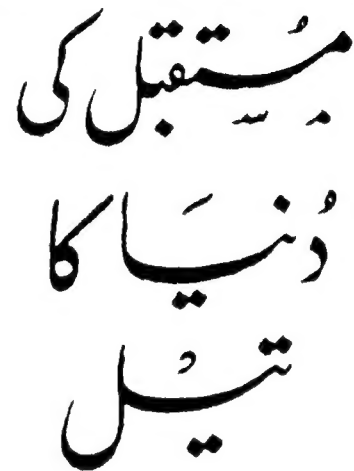 مُستقبل کی
دُنیَا کا
تیل